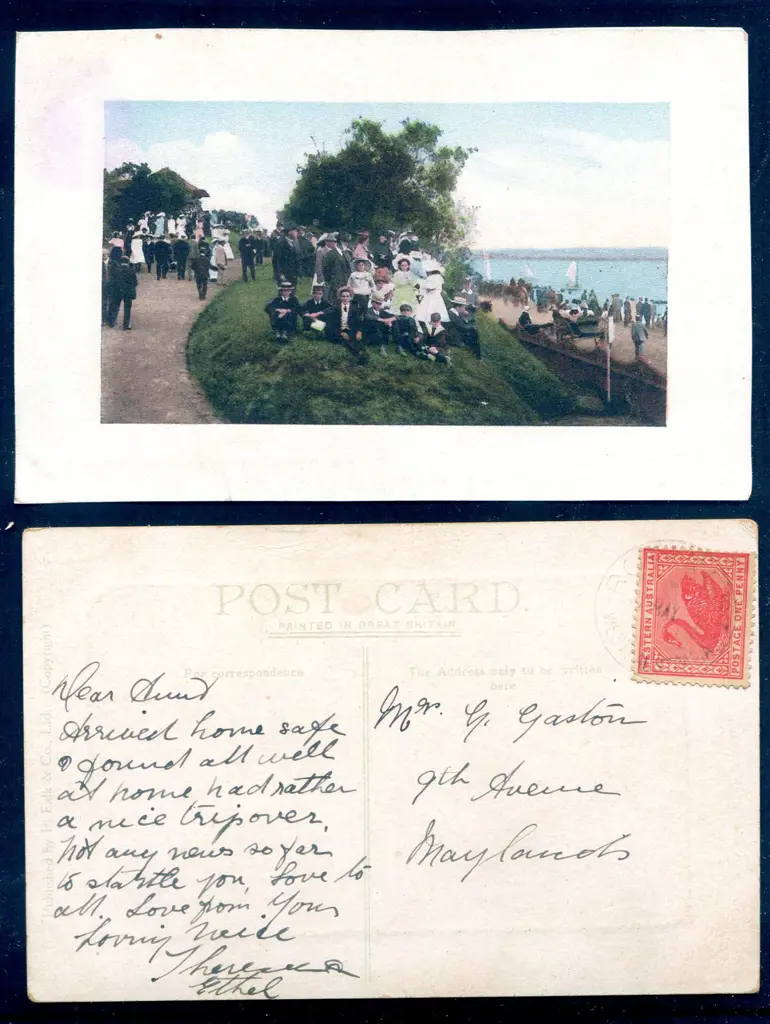 POST CARD.
PRINTED IN GREAT BRITAIN
For correspondence
The Address only to be written
here
Published by P. Falk & Co., Ltd. (Copyright)
WESTERN AUSTRALIA
POSTAGE ONE PENNY
MAY
Dear Aunt
Arrived home safe
& found all well
at home had rather
a nice trip over,
Not any news so far
to startle you, Love to
all. Love from Your
Loving Neice
Theresa
Ethel
Mrs. G. Gaston
9th Avenue
Maylands